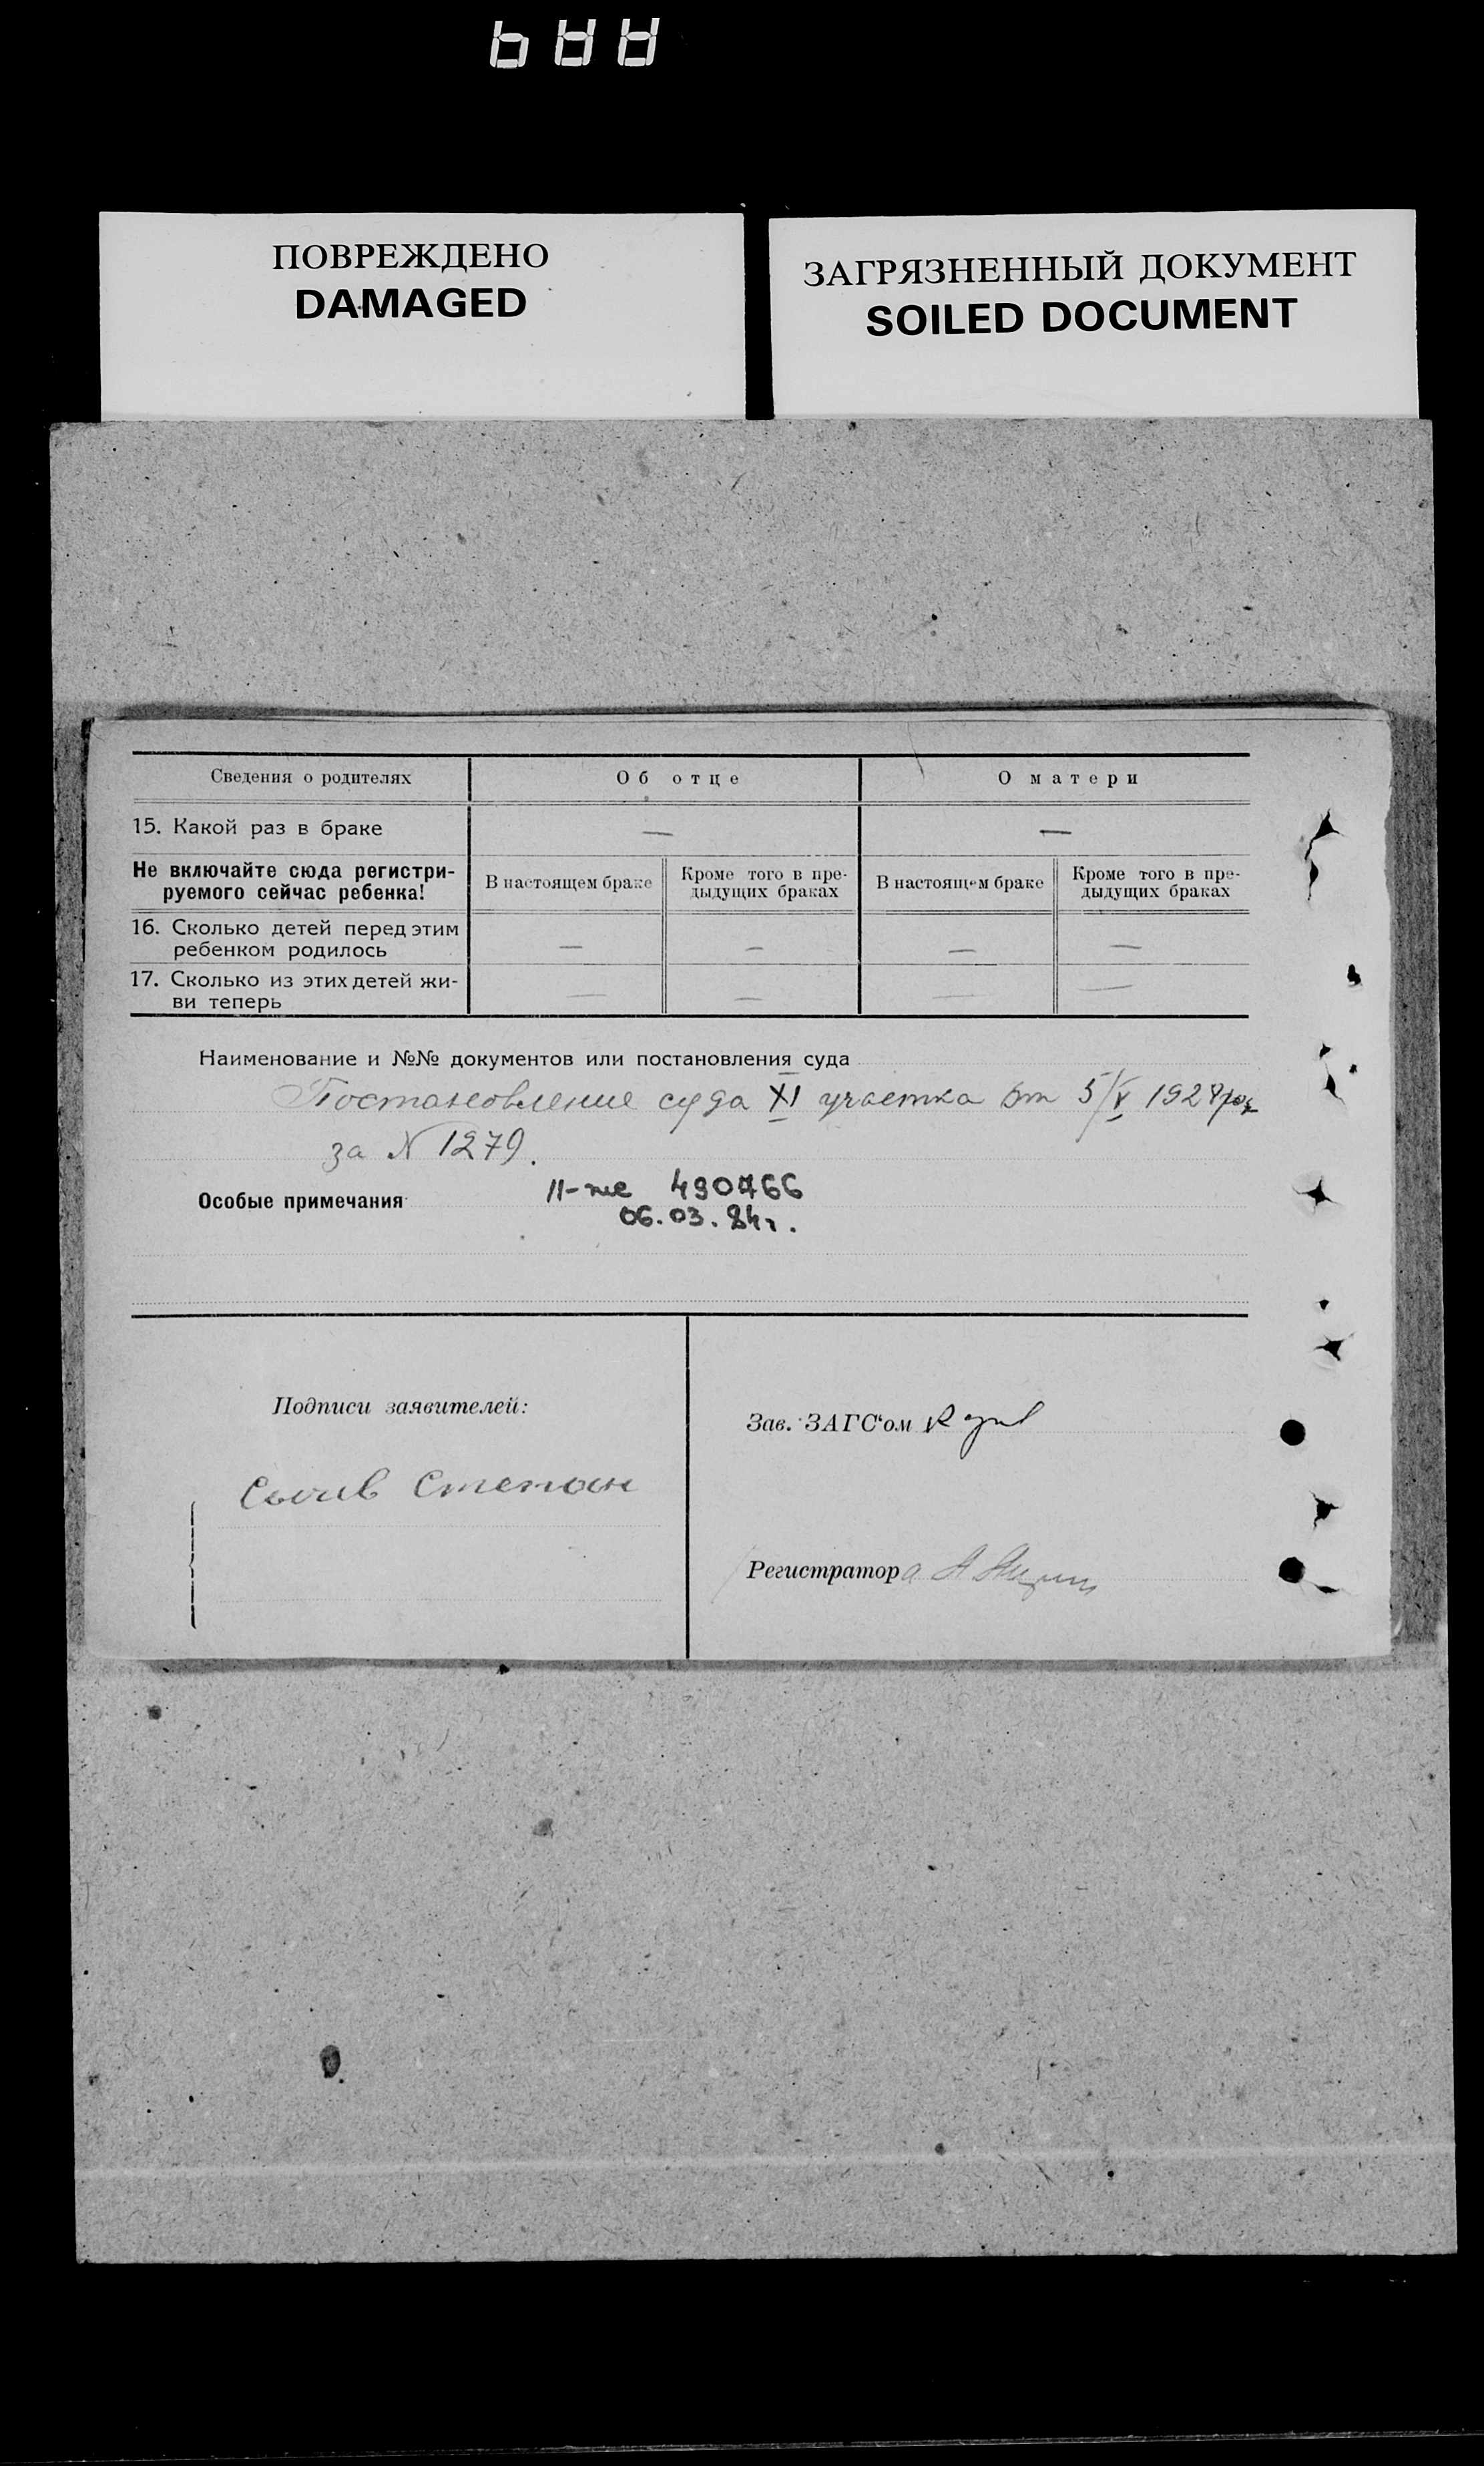 ПОВРЕЖДЕНО
DAMAGED
ЗАГРЯЗНЕННЫЙ ДОКУМЕНТ
SOILED DOCUMENT
Сведения о родителях
Об отце
О матери
15. Какой раз в браке
—
—
Не включайте сюда регистри-
руемого сейчас ребенка!
В настоящем браке
Кроме того в пре-
дыдущих браках
В настоящем браке
Кроме того в пре-
дыдущих браках
16. Сколько детей перед этим
ребенком родилось
—
—
—
—
17. Сколько из этих детей жи-
ви теперь
—
—
—
—
Наименование и №№ документов или постановления суда
Постановление суда XI участка от 5/V 1928
за N 1279.
II-же 490766
Особые примечания
06.03.84г.
Подписи заявителей:
Степан
Зав. ЗАГС‘ом
Регистратор